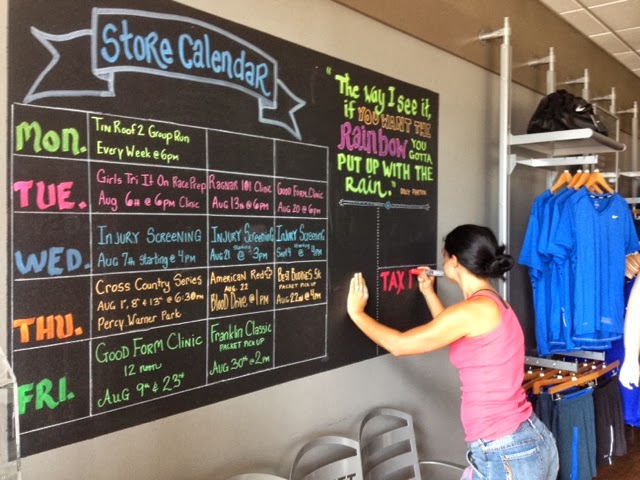 Store Calendar
"The Way I see it,
if YOU WANT THE
Rainbow YOU
GOTTA
PUT UP WITH THE
Rain."
DOLLY PARTON
Mon.
Tin Roof 2 Group Run
Every Week @ 6pm
TUE.
Girls Tri It On Race Prep
Aug 6th @ 6pm Clinic
Ragnar 101 Clinic
Aug 13th @ 6pm
Good Form Clinic
Aug 20 @ 6pm
WED.
Injury Screening
Aug 7th Starting @ 4pm
Injury Screening
Aug 21 @ 3pm
Injury Screening
Sept 4 @ 4pm
THU.
Cross Country Series
Aug 1st, 8th & 13th @ 6:30pm
Percy Warner Park
American Red +
Aug. 22
Blood Drive @ 1pm
Packet Pick Up
Aug 22nd @ 4pm
FRI.
Good Form Clinic
12 noon
Aug 9th & 23rd
Franklin Classic
Packet Pick Up
Aug 30th @ 2pm
TAX